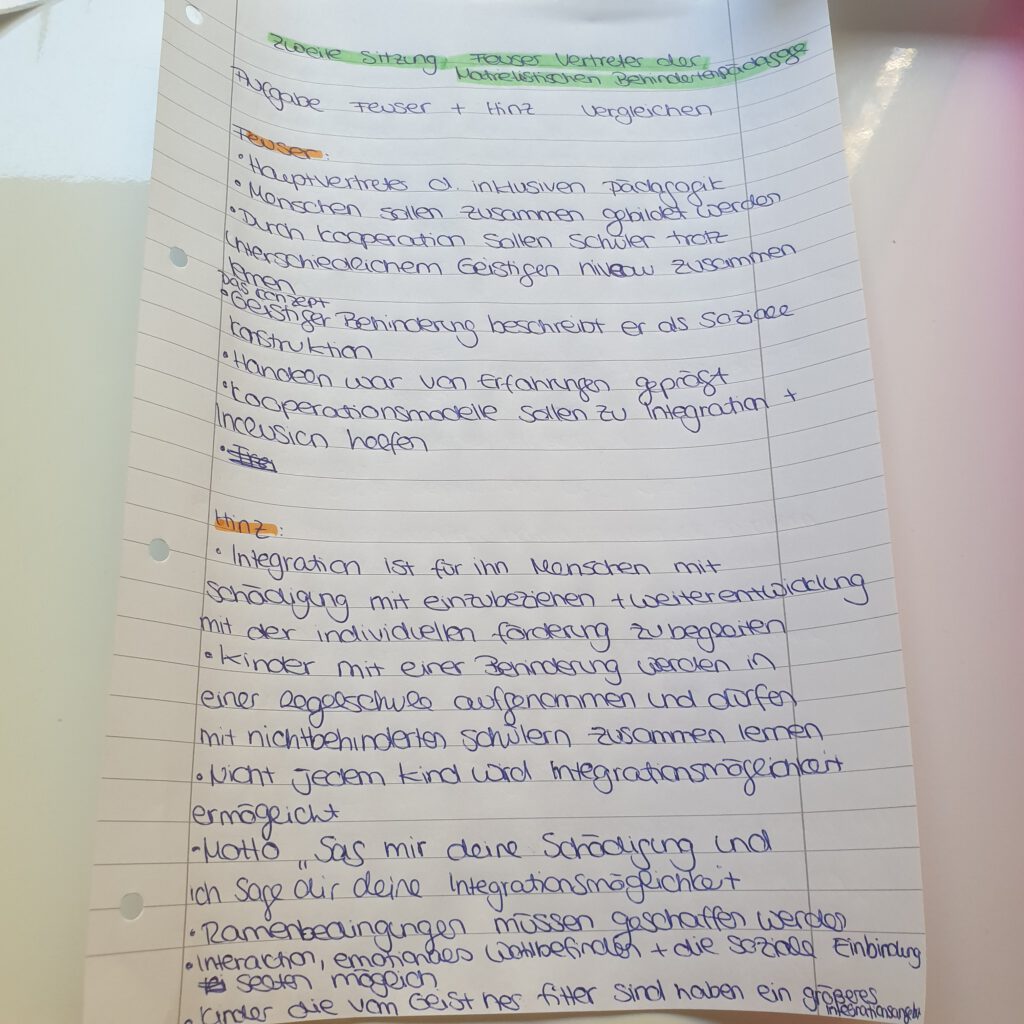 Zweite Sitzung Feuser Vertreter der
Matrelistischen Behindertenpädagoge
Aufgabe Feuser + Hinz vergleichen
Feuser:
• Hauptvertreter d. inklusiven pädagogik
• Menschen sollen zusammen gebildet werden
• Durch Kooperation sollen Schüler trotz
Unterschiedleichem Geistigen niveau zusammen
lernen
Das Conzept
• Geistiger Behinderung beschreibt er als Soziale
Konstruktion
• Handeln war von Erfahrungen geprägt
• Kooperationsmodelle sollen zu Integration +
Inclusion helfen
•
Hinz:
• Integration ist für ihn Menschen mit
Schädigung mit einzubeziehen + weiterentwicklung
mit der individuellen förderung zu begleiten
• Kinder mit einer Behinderung werden in
einer Regelschule aufgenommen und dürfen
mit nichtbehinderten schülern zusammen lernen
• Nicht jedem Kind wird Integrationsmöglichkeit
ermöglicht
• Motto „Sag mir deine Schädigung und
ich sage dir deine Integrationsmöglichkeit
• Ramenbedingungen müssen geschaffen werden
• Interaction, emotionales Wohlbefinden + die soziale Einbindung
selten möglich
• Kinder die vom Geist her fitter sind haben ein größeres
integrationsangebot